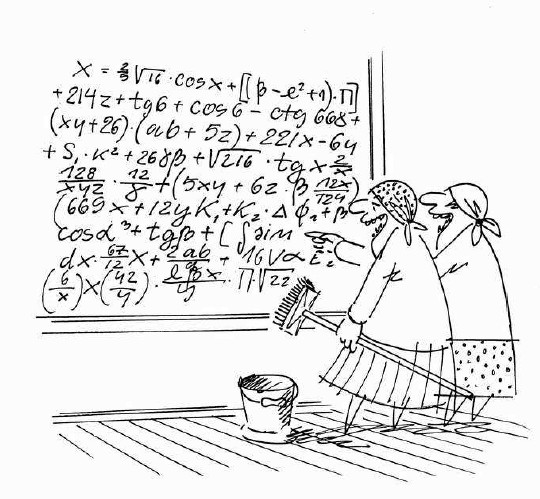 x = 2/3 √16 · cos x + [[β - e² + 1) · Π]
+ 214z + tg6 + cos6 - ctg 668 +
(xy + 26) · (ab + 5z) + 221x - 6y
+ S₁ · K² + 26γβ + √216 · tg x 2/x
128/xyz · 12/8 + (5xy + 6z · β 12x/124)
(669x + 12y K₁ + K₂ · Δ φ₁ + β
cosα³ + tgβ + [∫sin
dx · 67/12 x + 2ab + 16Vα
(6/x) x (42/y) · Π · √22